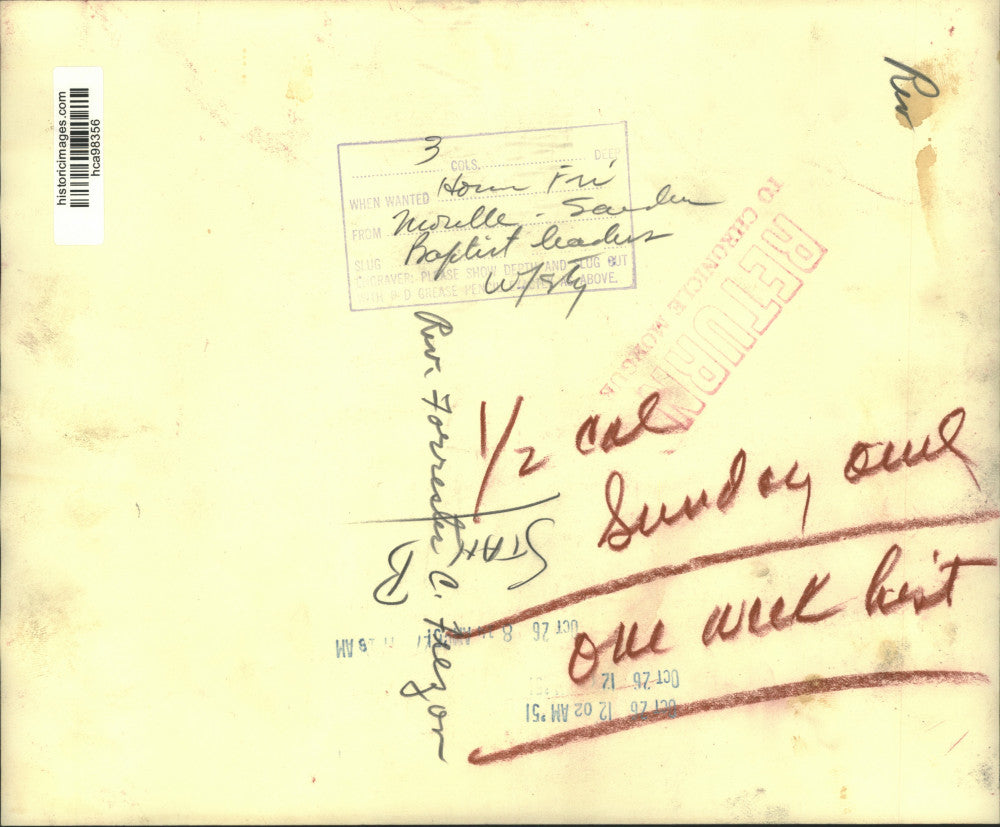 historicimages.com
hca98356
Rev
3 COLS. DEEP
WHEN WANTED Home Fri
FROM Morelle - Saeden
SLUG Baptist leaders
ENGRAVER: PLEASE SHOW DEPTH AND SLUG OUT
WITH RED GREASE ABOVE.
W/sty
RETURN
TO CHRONICLE MORGUE
Rev. Forrester C.
1/2 col
Sunday only
STAN
B
one week hist
OCT 26 8 AM '51
8 AM
OCT 26 12
OCT 26 12 02 AM '51